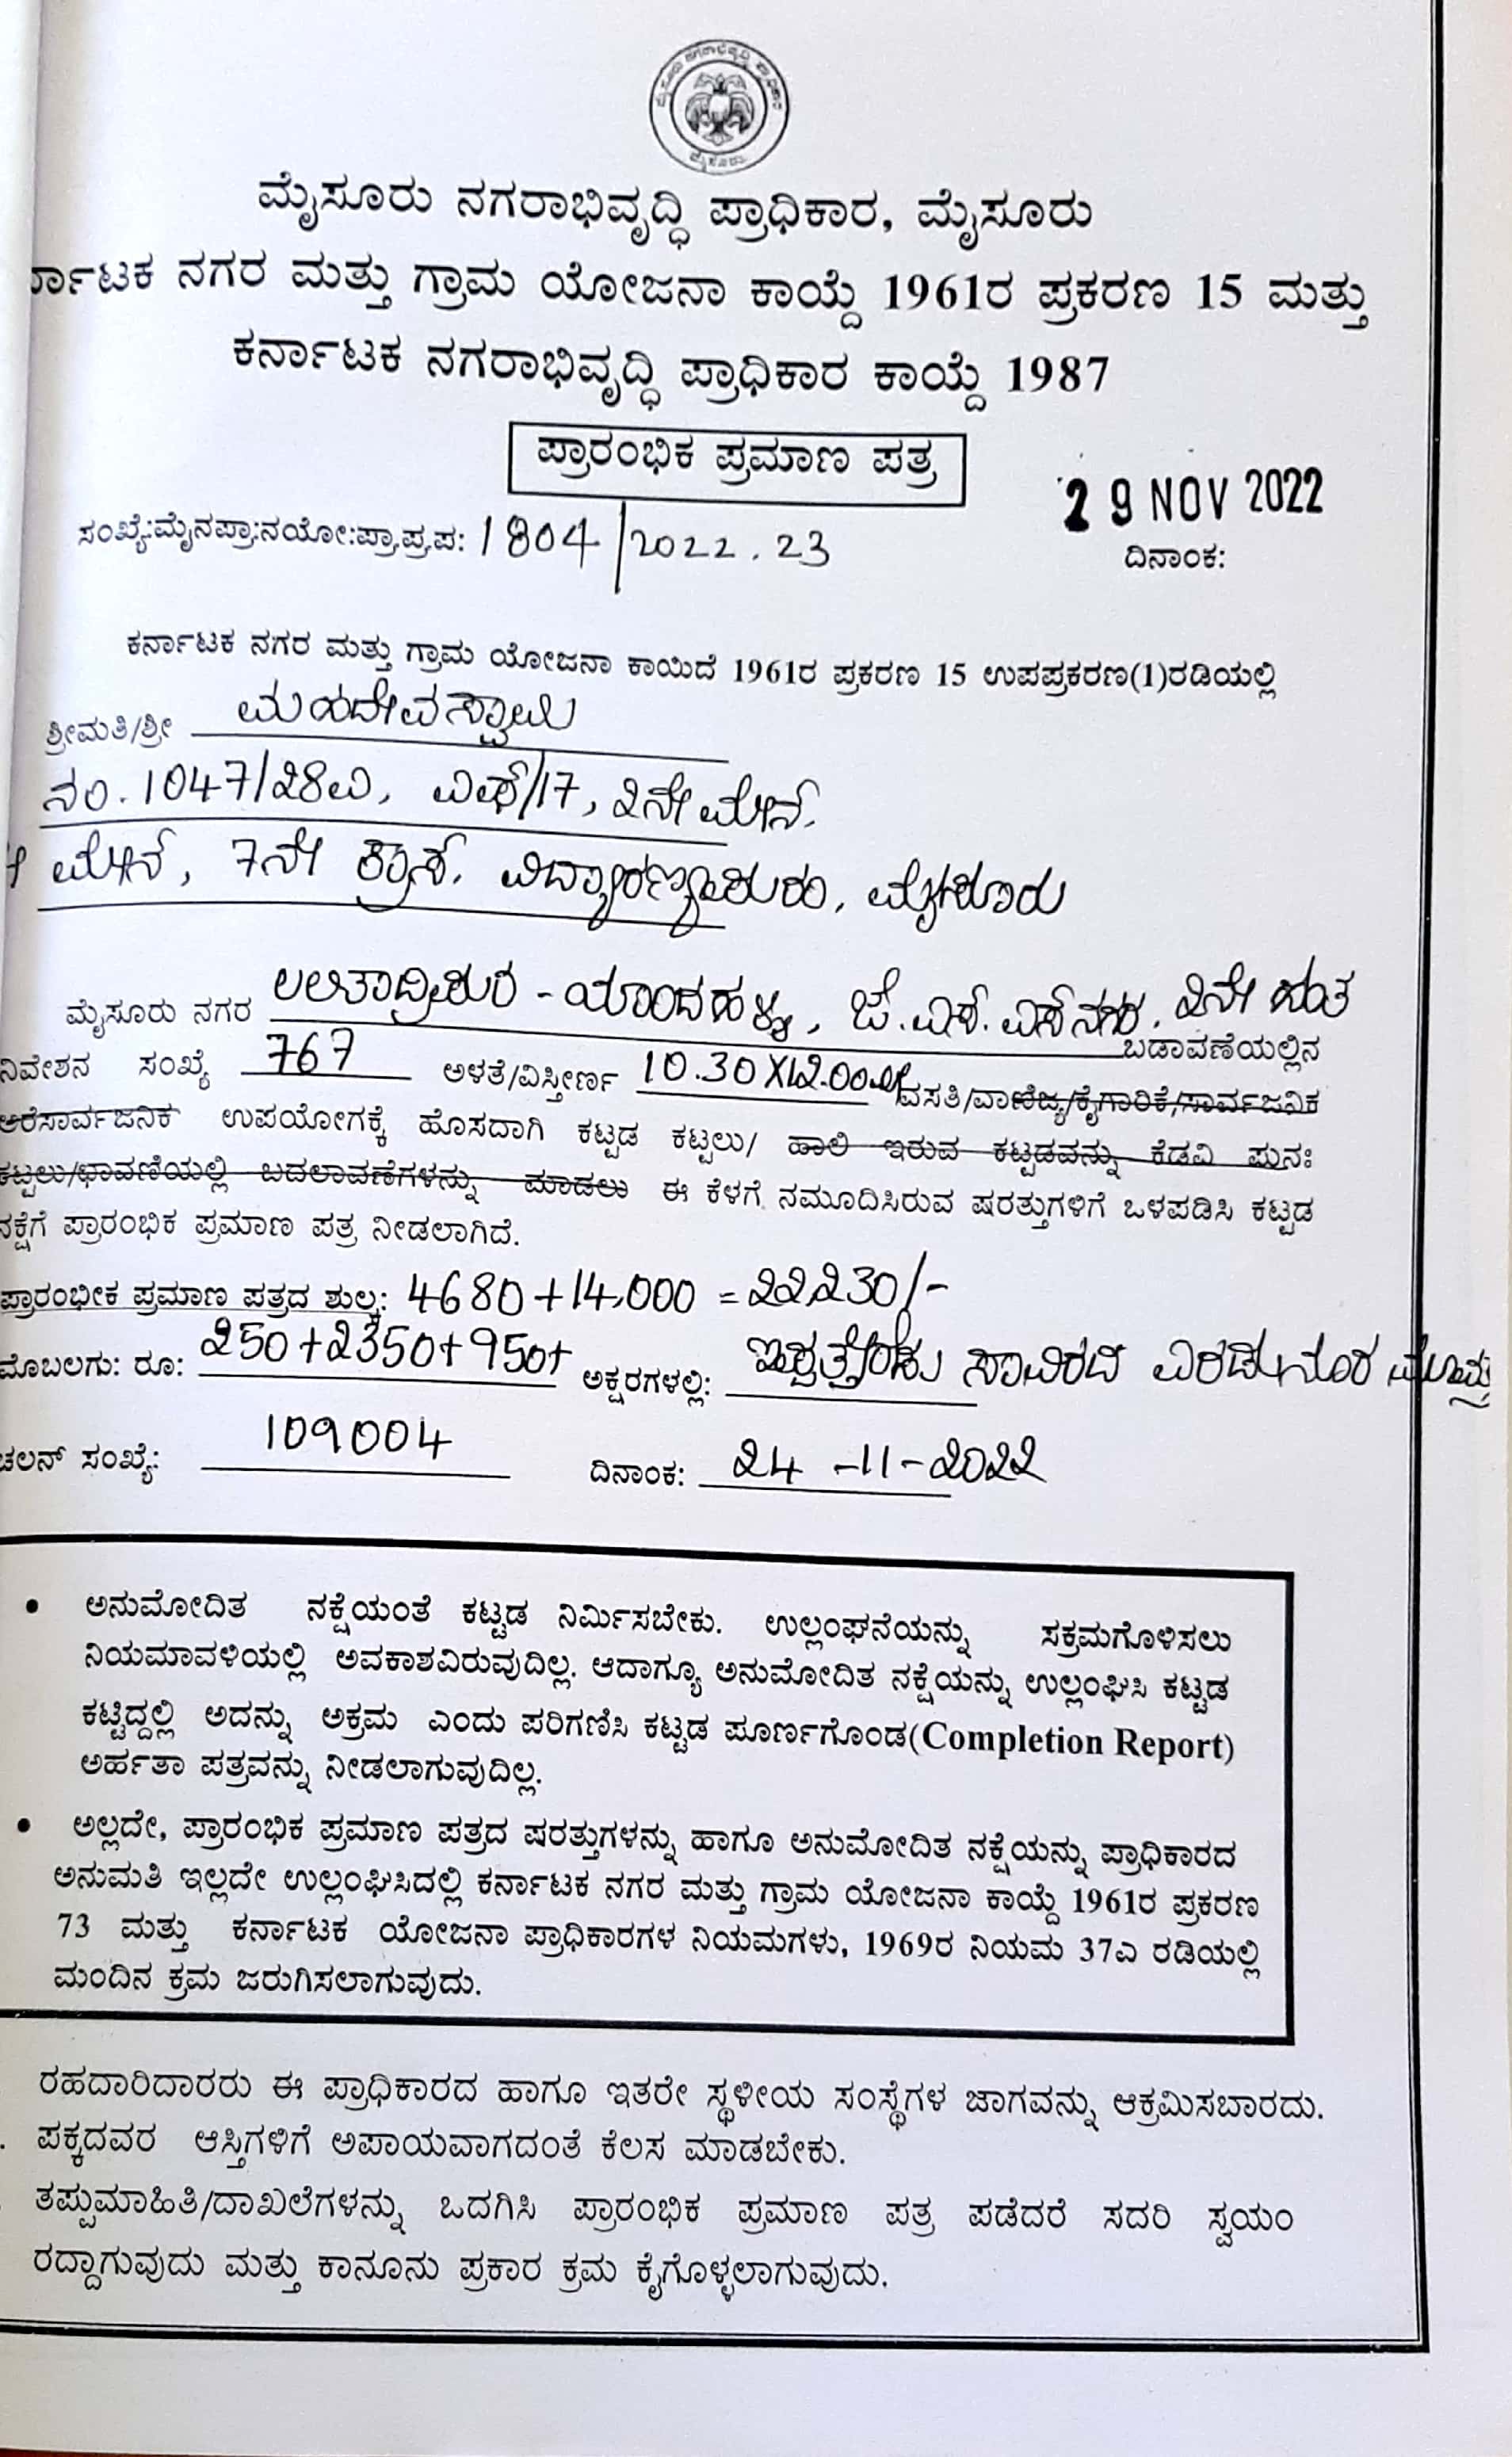 ಮೈಸೂರು ನಗರಾಭಿವೃದ್ಧಿ ಪ್ರಾಧಿಕಾರ
ಮೈಸೂರು
ಮೈಸೂರು ನಗರಾಭಿವೃದ್ಧಿ ಪ್ರಾಧಿಕಾರ, ಮೈಸೂರು
ರ್ನಾಟಕ ನಗರ ಮತ್ತು ಗ್ರಾಮ ಯೋಜನಾ ಕಾಯ್ದೆ 1961ರ ಪ್ರಕರಣ 15 ಮತ್ತು
ಕರ್ನಾಟಕ ನಗರಾಭಿವೃದ್ಧಿ ಪ್ರಾಧಿಕಾರ ಕಾಯ್ದೆ 1987
ಪ್ರಾರಂಭಿಕ ಪ್ರಮಾಣ ಪತ್ರ
29 NOV 2022
ಸಂಖ್ಯೆ:ಮೈನಪ್ರಾ:ನಯೋ:ಪ್ರಾ.ಪ್ರ.ಪ: 1804/2022.23 ದಿನಾಂಕ:
ಕರ್ನಾಟಕ ನಗರ ಮತ್ತು ಗ್ರಾಮ ಯೋಜನಾ ಕಾಯಿದೆ 1961ರ ಪ್ರಕರಣ 15 ಉಪಪ್ರಕರಣ(1)ರಡಿಯಲ್ಲಿ
ಶ್ರೀಮತಿ/ಶ್ರೀ ಮಹದೇವಸ್ವಾಮಿ
ನಂ. 1047/28ಎ, ಎಫ್/17, 2ನೇ ಮೇನ್.
ಮೇನ್, 7ನೇ ಕ್ರಾಸ್. ವಿದ್ಯಾರಣ್ಯಪುರಂ, ಮೈಸೂರು
ಮೈಸೂರು ನಗರ ಲಲಿತಾದ್ರಿಪುರ - ಯಾಂದಹಳ್ಳಿ, ಜೆ.ಎಸ್.ಎಸ್ ನಗರ. 2ನೇ ಹಂತ
ಬಡಾವಣೆಯಲ್ಲಿನ
ನಿವೇಶನ ಸಂಖ್ಯೆ 767 ಅಳತೆ/ವಿಸ್ತೀರ್ಣ 10.30X12.00ಮೀ ವಸತಿ/ವಾಣಿಜ್ಯ/ಕೈಗಾರಿಕೆ/ಸಾರ್ವಜನಿಕ
ಅರೆಸಾರ್ವಜನಿಕ ಉಪಯೋಗಕ್ಕೆ ಹೊಸದಾಗಿ ಕಟ್ಟಡ ಕಟ್ಟಲು/ ಹಾಲಿ ಇರುವ ಕಟ್ಟಡವನ್ನು ಕೆಡವಿ ಪುನಃ
ಕಟ್ಟಲು/ಛಾವಣಿಯಲ್ಲಿ ಬದಲಾವಣೆಗಳನ್ನು ಮಾಡಲು ಈ ಕೆಳಗೆ ನಮೂದಿಸಿರುವ ಷರತ್ತುಗಳಿಗೆ ಒಳಪಡಿಸಿ ಕಟ್ಟಡ
ನಕ್ಷೆಗೆ ಪ್ರಾರಂಭಿಕ ಪ್ರಮಾಣ ಪತ್ರ ನೀಡಲಾಗಿದೆ.
ಪ್ರಾರಂಭೀಕ ಪ್ರಮಾಣ ಪತ್ರದ ಶುಲ್ಕ: 4680+14,000 = 22,230/-
ಮೊಬಲಗು: ರೂ: 250+2350+950+ ಅಕ್ಷರಗಳಲ್ಲಿ: ಇಪ್ಪತ್ತೆರಡು ಸಾವಿರದ ಎರಡುನೂರ ಮೂವತ್ತು
ಚಲನ್ ಸಂಖ್ಯೆ: 109004 ದಿನಾಂಕ: 24-11-2022
• ಅನುಮೋದಿತ ನಕ್ಷೆಯಂತೆ ಕಟ್ಟಡ ನಿರ್ಮಿಸಬೇಕು. ಉಲ್ಲಂಘನೆಯನ್ನು ಸಕ್ರಮಗೊಳಿಸಲು
ನಿಯಮಾವಳಿಯಲ್ಲಿ ಅವಕಾಶವಿರುವುದಿಲ್ಲ. ಆದಾಗ್ಯೂ ಅನುಮೋದಿತ ನಕ್ಷೆಯನ್ನು ಉಲ್ಲಂಘಿಸಿ ಕಟ್ಟಡ
ಕಟ್ಟಿದ್ದಲ್ಲಿ ಅದನ್ನು ಅಕ್ರಮ ಎಂದು ಪರಿಗಣಿಸಿ ಕಟ್ಟಡ ಪೂರ್ಣಗೊಂಡ(Completion Report)
ಅರ್ಹತಾ ಪತ್ರವನ್ನು ನೀಡಲಾಗುವುದಿಲ್ಲ.
• ಅಲ್ಲದೇ, ಪ್ರಾರಂಭಿಕ ಪ್ರಮಾಣ ಪತ್ರದ ಷರತ್ತುಗಳನ್ನು ಹಾಗೂ ಅನುಮೋದಿತ ನಕ್ಷೆಯನ್ನು ಪ್ರಾಧಿಕಾರದ
ಅನುಮತಿ ಇಲ್ಲದೇ ಉಲ್ಲಂಘಿಸಿದಲ್ಲಿ ಕರ್ನಾಟಕ ನಗರ ಮತ್ತು ಗ್ರಾಮ ಯೋಜನಾ ಕಾಯ್ದೆ 1961ರ ಪ್ರಕರಣ
73 ಮತ್ತು ಕರ್ನಾಟಕ ಯೋಜನಾ ಪ್ರಾಧಿಕಾರಗಳ ನಿಯಮಗಳು, 1969ರ ನಿಯಮ 37ಎ ರಡಿಯಲ್ಲಿ
ಮಂದಿನ ಕ್ರಮ ಜರುಗಿಸಲಾಗುವುದು.
ರಹದಾರಿದಾರರು ಈ ಪ್ರಾಧಿಕಾರದ ಹಾಗೂ ಇತರೇ ಸ್ಥಳೀಯ ಸಂಸ್ಥೆಗಳ ಜಾಗವನ್ನು ಆಕ್ರಮಿಸಬಾರದು.
ಪಕ್ಕದವರ ಆಸ್ತಿಗಳಿಗೆ ಅಪಾಯವಾಗದಂತೆ ಕೆಲಸ ಮಾಡಬೇಕು.
ತಪ್ಪುಮಾಹಿತಿ/ದಾಖಲೆಗಳನ್ನು ಒದಗಿಸಿ ಪ್ರಾರಂಭಿಕ ಪ್ರಮಾಣ ಪತ್ರ ಪಡೆದರೆ ಸದರಿ ಸ್ವಯಂ
ರದ್ದಾಗುವುದು ಮತ್ತು ಕಾನೂನು ಪ್ರಕಾರ ಕ್ರಮ ಕೈಗೊಳ್ಳಲಾಗುವುದು.